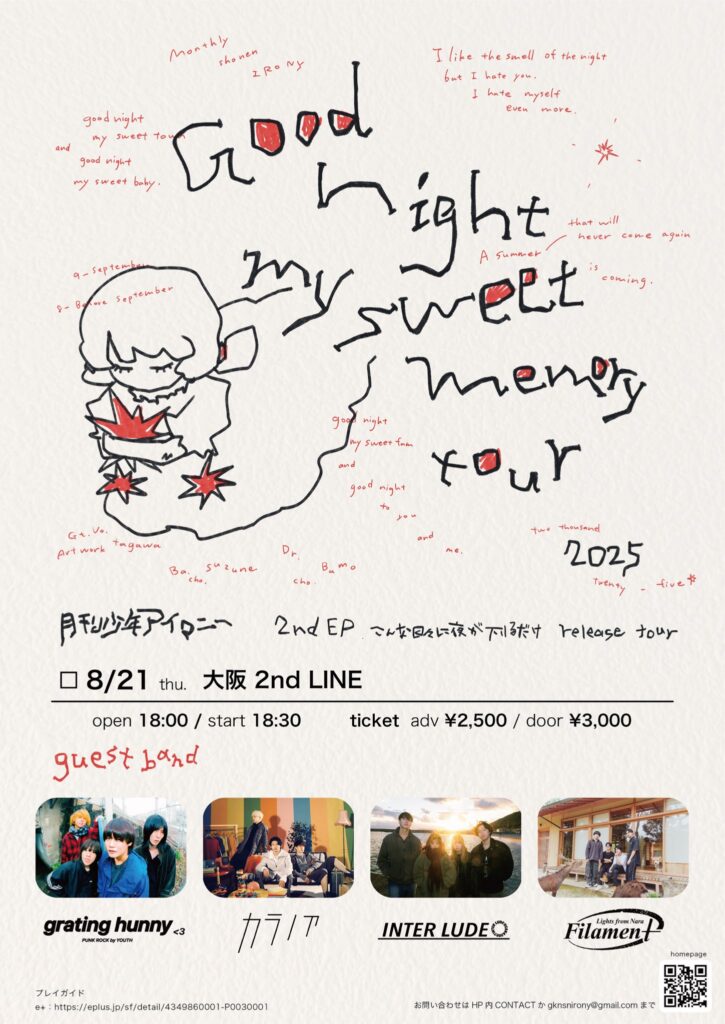 Monthly
shonen
IRONY
Good
night
my
sweet
memory
tour
I like the smell of the night
but I hate you.
I hate myself
even more.
good night
my sweet town
and
good night
my sweet baby.
that will
never come again
A summer
is
coming.
9 - September
8 - Before September
good night
my sweet
and
good night
to
you
and
me.
Gt. Vo.
Artwork tagawa
Ba. suzune
cho.
Dr. Bamo
cho.
two thousand
2025
Twenty - five*
月刊少年アイロニー 2nd EP こんな日々に夜が下りるだけ release tour
□ 8/21 thu. 大阪 2nd LINE
open 18:00 / start 18:30 ticket adv ¥2,500 / door ¥3,000
guest band
grating hunny <3
PUNK ROCK by YOUTH
カラノア
INTER LUDE
Lights from Nara
Filament
homepage
プレイガイド
e+：https://eplus.jp/sf/detail/4349860001-P0030001
お問い合わせは HP 内 CONTACT か gknsnirony@gmail.com まで